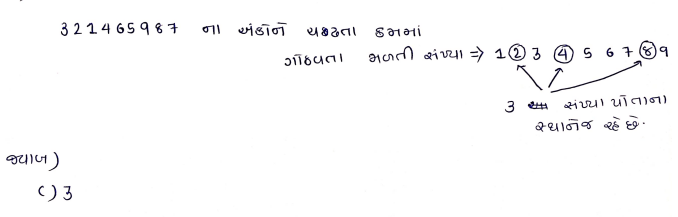 321465987 ના અંકોને ચઢતા ક્રમમાં
ગોઠવતા મળતી સંખ્યા => 1 2 3 4 5 6 7 8 9
3 સંખ્યા પોતાના
સ્થાનેજ રહે છે.
જવાબ)
C) 3